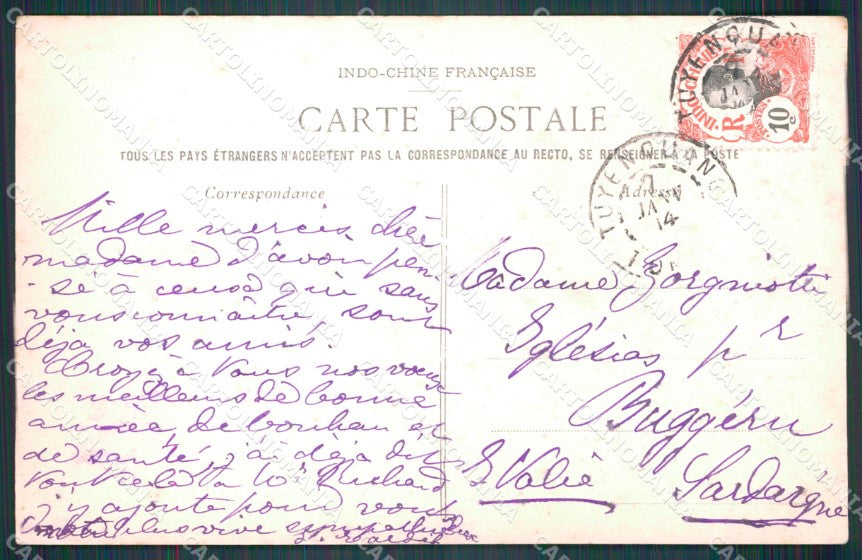 INDO-CHINE FRANÇAISE
CARTE POSTALE
TOUS LES PAYS ÉTRANGERS N'ACCEPTENT PAS LA CORRESPONDANCE AU RECTO, SE RENSEIGNER A LA POSTE
Correspondance
Mille mercis chère
madame d'avoir pen-
-sé à ceux que sans
vous connaître, sont
déjà vos amis.
Croyez à vous nos voeux
les meilleurs de bonne
année, de bonheur et
de santé, j'ai déjà dit
tout cela à Richard
j'y ajoute pour vous
plus vive
Adresse
Madame
Iglésias pr
Buggéru
Sardaigne
TUYENQUAN
TUYENQUAN
7
JANV
14
INDOCHINE
R
POSTES
10
c
CARTOLINOMANIA